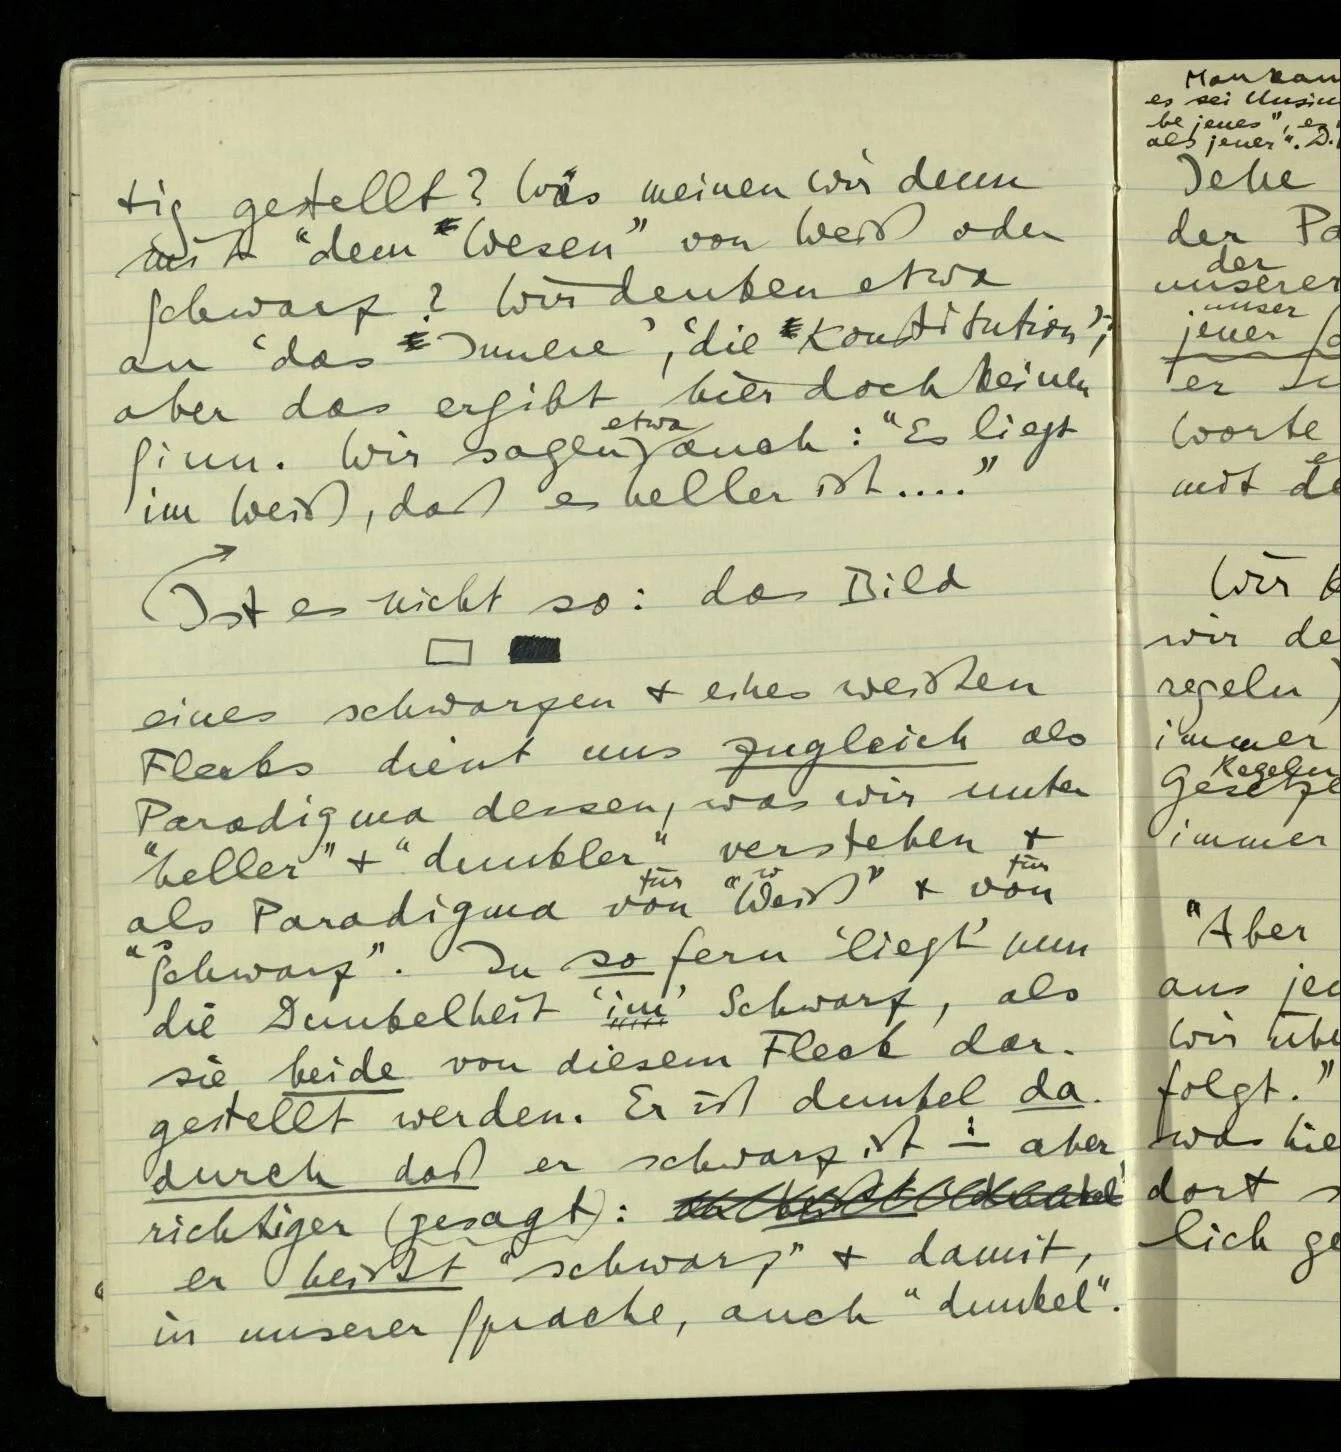 tig gestellt? Was meinen wir denn
mit "dem "Wesen" von Weiß oder
Schwarz? Wir denken etwa
an 'das Innere', 'die Konstitution';
aber das ergibt hier doch keinen
Sinn. Wir sagen etwa auch: "Es liegt
im Weiß, daß es heller ist...."
Ist es nicht so: das Bild
eines schwarzen + eines weißen
Flecks dient uns zugleich als
Paradigma dessen, was wir unter
"heller" + "dunkler" verstehen +
für für
als Paradigma von "Weiß" + von
"Schwarz". In so fern 'liegt' nun
die Dunkelheit 'im' Schwarz, als
sie beide von diesem Fleck dar-
gestellt werden. Er ist dunkel da-
durch daß er schwarz ist – aber
richtiger (gesagt):
er heißt "schwarz" + damit,
in unserer Sprache, auch "dunkel".
es sei
be jenes",
als jener".
Jene
der
der
unserer
unser
jener
er
Worte
mit
Wir
wir
regeln
immer
Regeln
Gesetze
immer
"Aber
aus
wir
folgt."
was
dort
lich